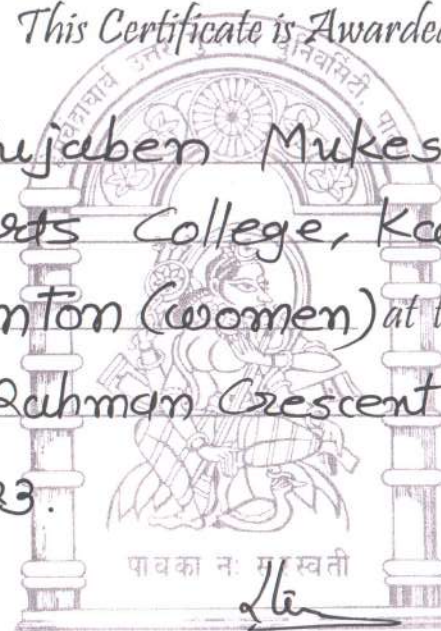 This Certificate is Awarded
ujaben Mukes
College, Ka
nton (women) at t
Rahman Crescent
3.
पावका नः सरस्वती